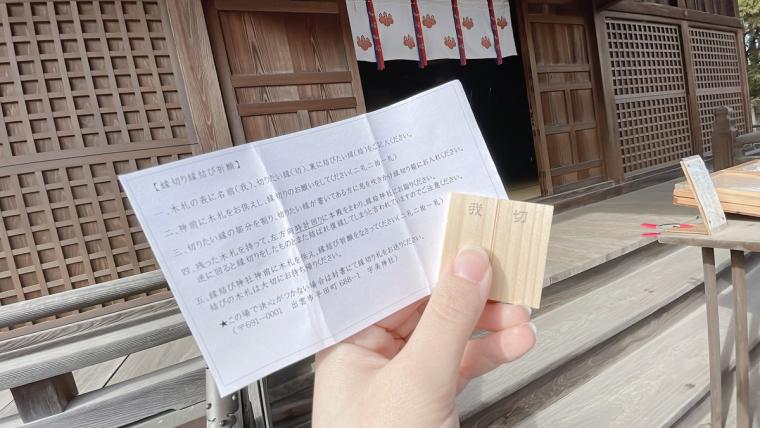 【縁切り縁結び祈願】
一、木札の表に名前(我)、切りたい縁(切)、裏に結びたい縁(結)をご記入ください。
二、神前に木札をお供えし、縁切りのお願いをしてください(二礼二拍一礼)
三、切りたい縁の部分を割り、切りたい縁が書いてある方に息を吹きかけ縁切り箱にお入れください。
四、残った木札を持って、左方向時計回りに本殿をまわり、縁結神社にお詣りください。
逆に回ると縁切りをしたものとまた結ばれ復縁してしまうと言われていますのでご注意ください。
五、縁結び神社神前に木札を供え、縁結び祈願をなさってください(二礼二拍一礼)
結びの木札は大切にお持ち帰りください。
★この場で決心がつかない場合は封書にて縁切り札をお送りください。
(〒691-0001 出雲市平田町688-1 宇美神社)
我 切